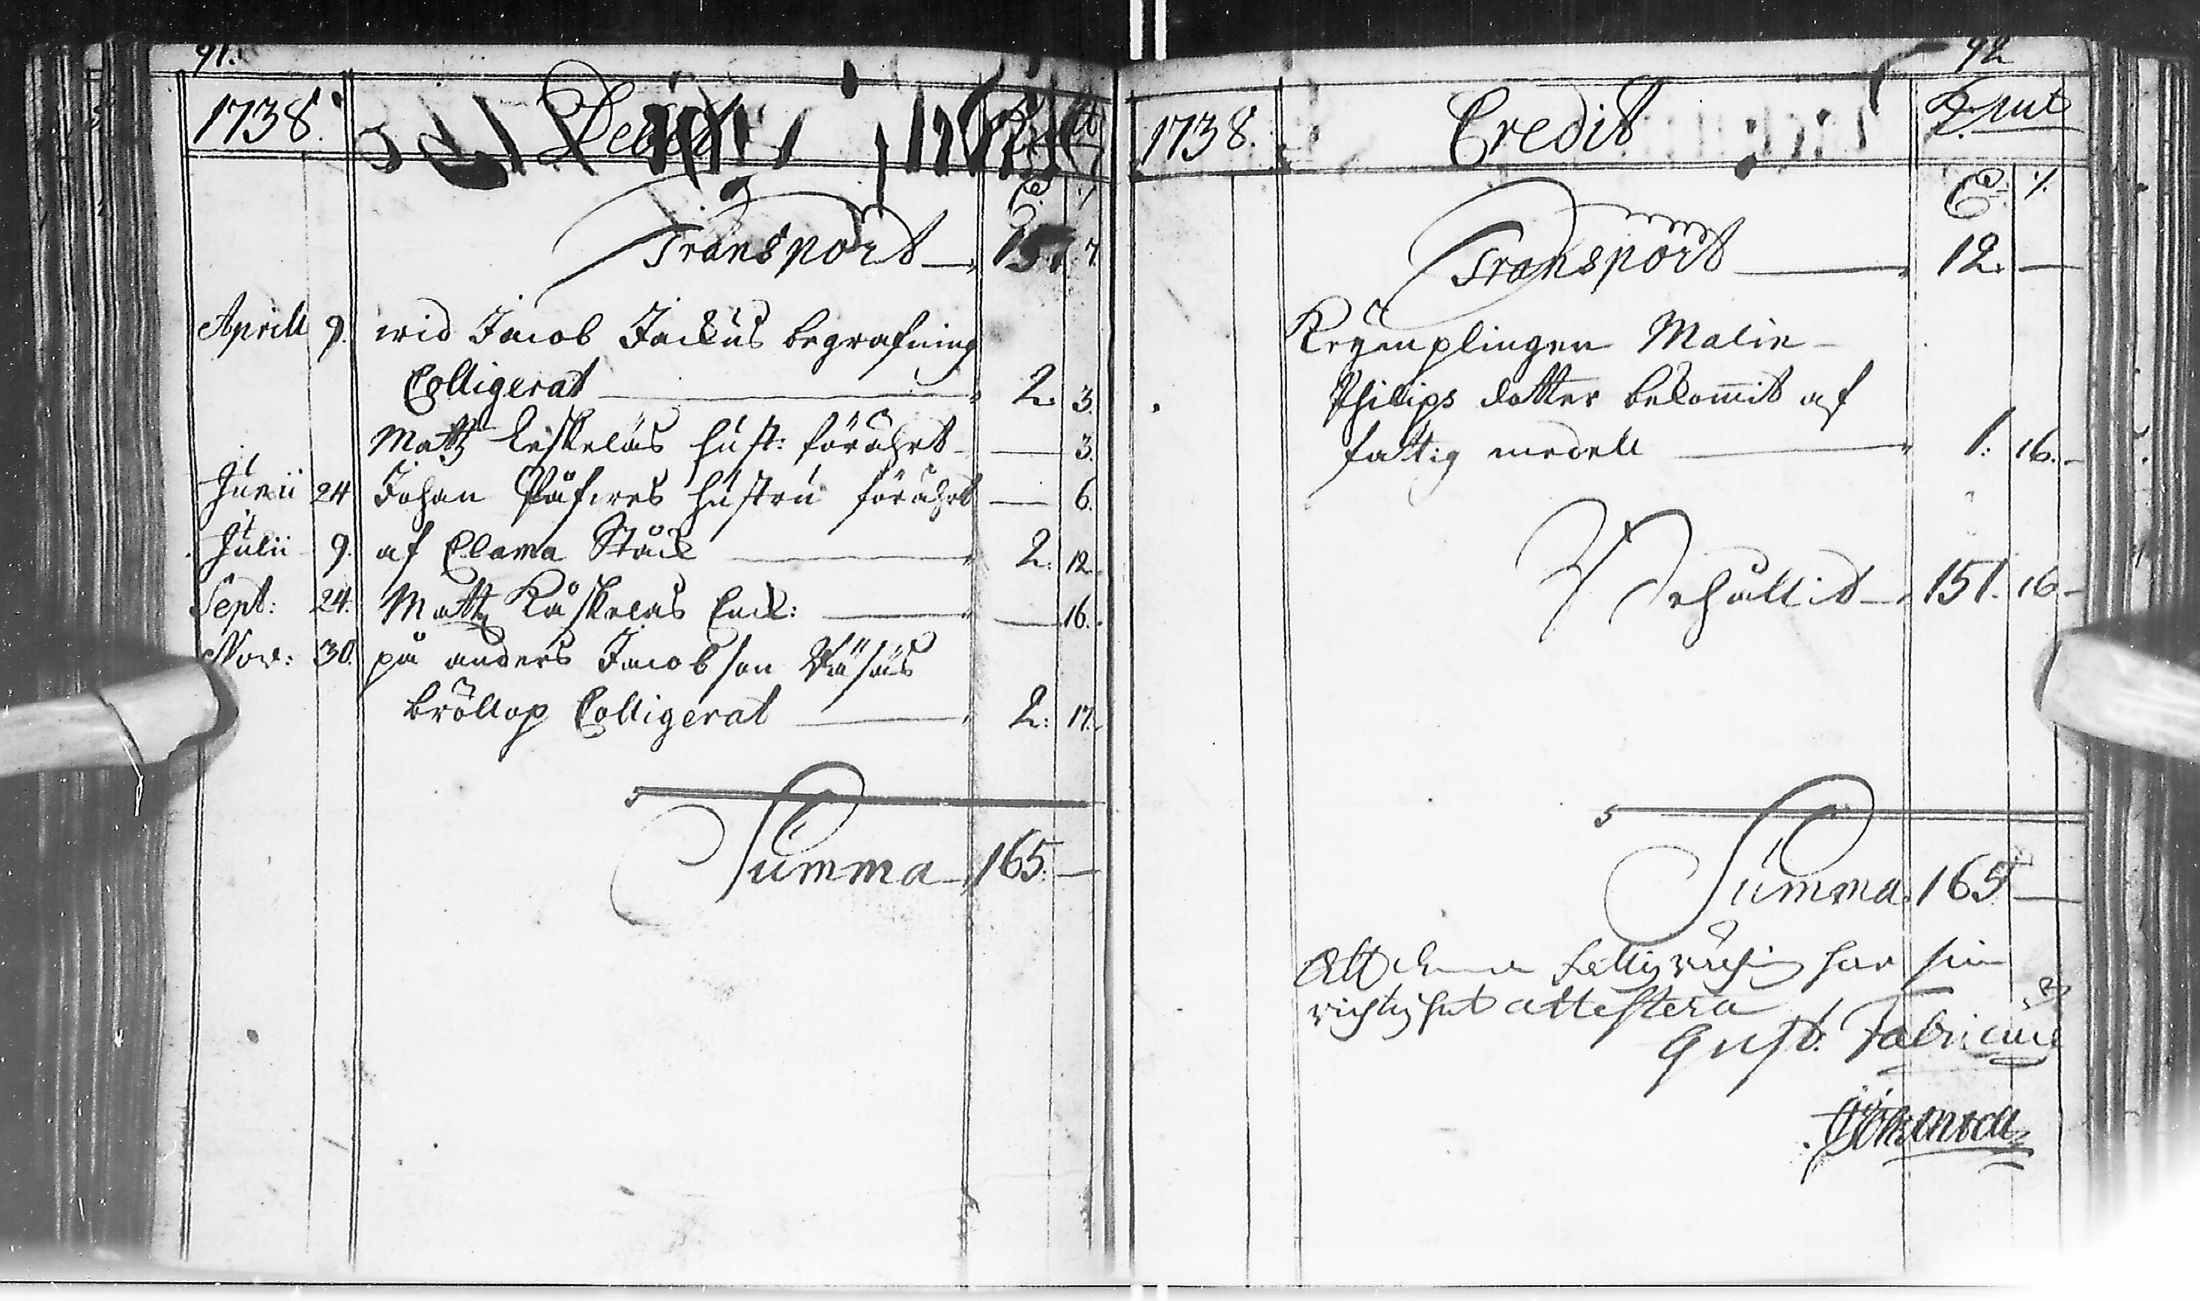 91.
1738. Debet
Transport 157. 7.
Aprill 9. wid Jacob Jackus begrafning
Colligerat 2. 3.
Matts Leskeläs hust: förährt — 3.
Junii 24 Johan hustru förährt — 6.
Julii 9. af Clama Stäck 2. 12.
Sept: 24. Matts Käskeläs Enck: — 16.
Nov: 30. på anders Jacobson
bröllop Colligerat 2: 17.
Summa 165. —
92
1738. Credit
Transport 12. —
Krymplingen Malin
Philips dotter bekommit af
fattig medell 1. 16.
Behållit 151. 16
Summa 165 —
Att har sin
richtighet attestera
Gust. Fabricius